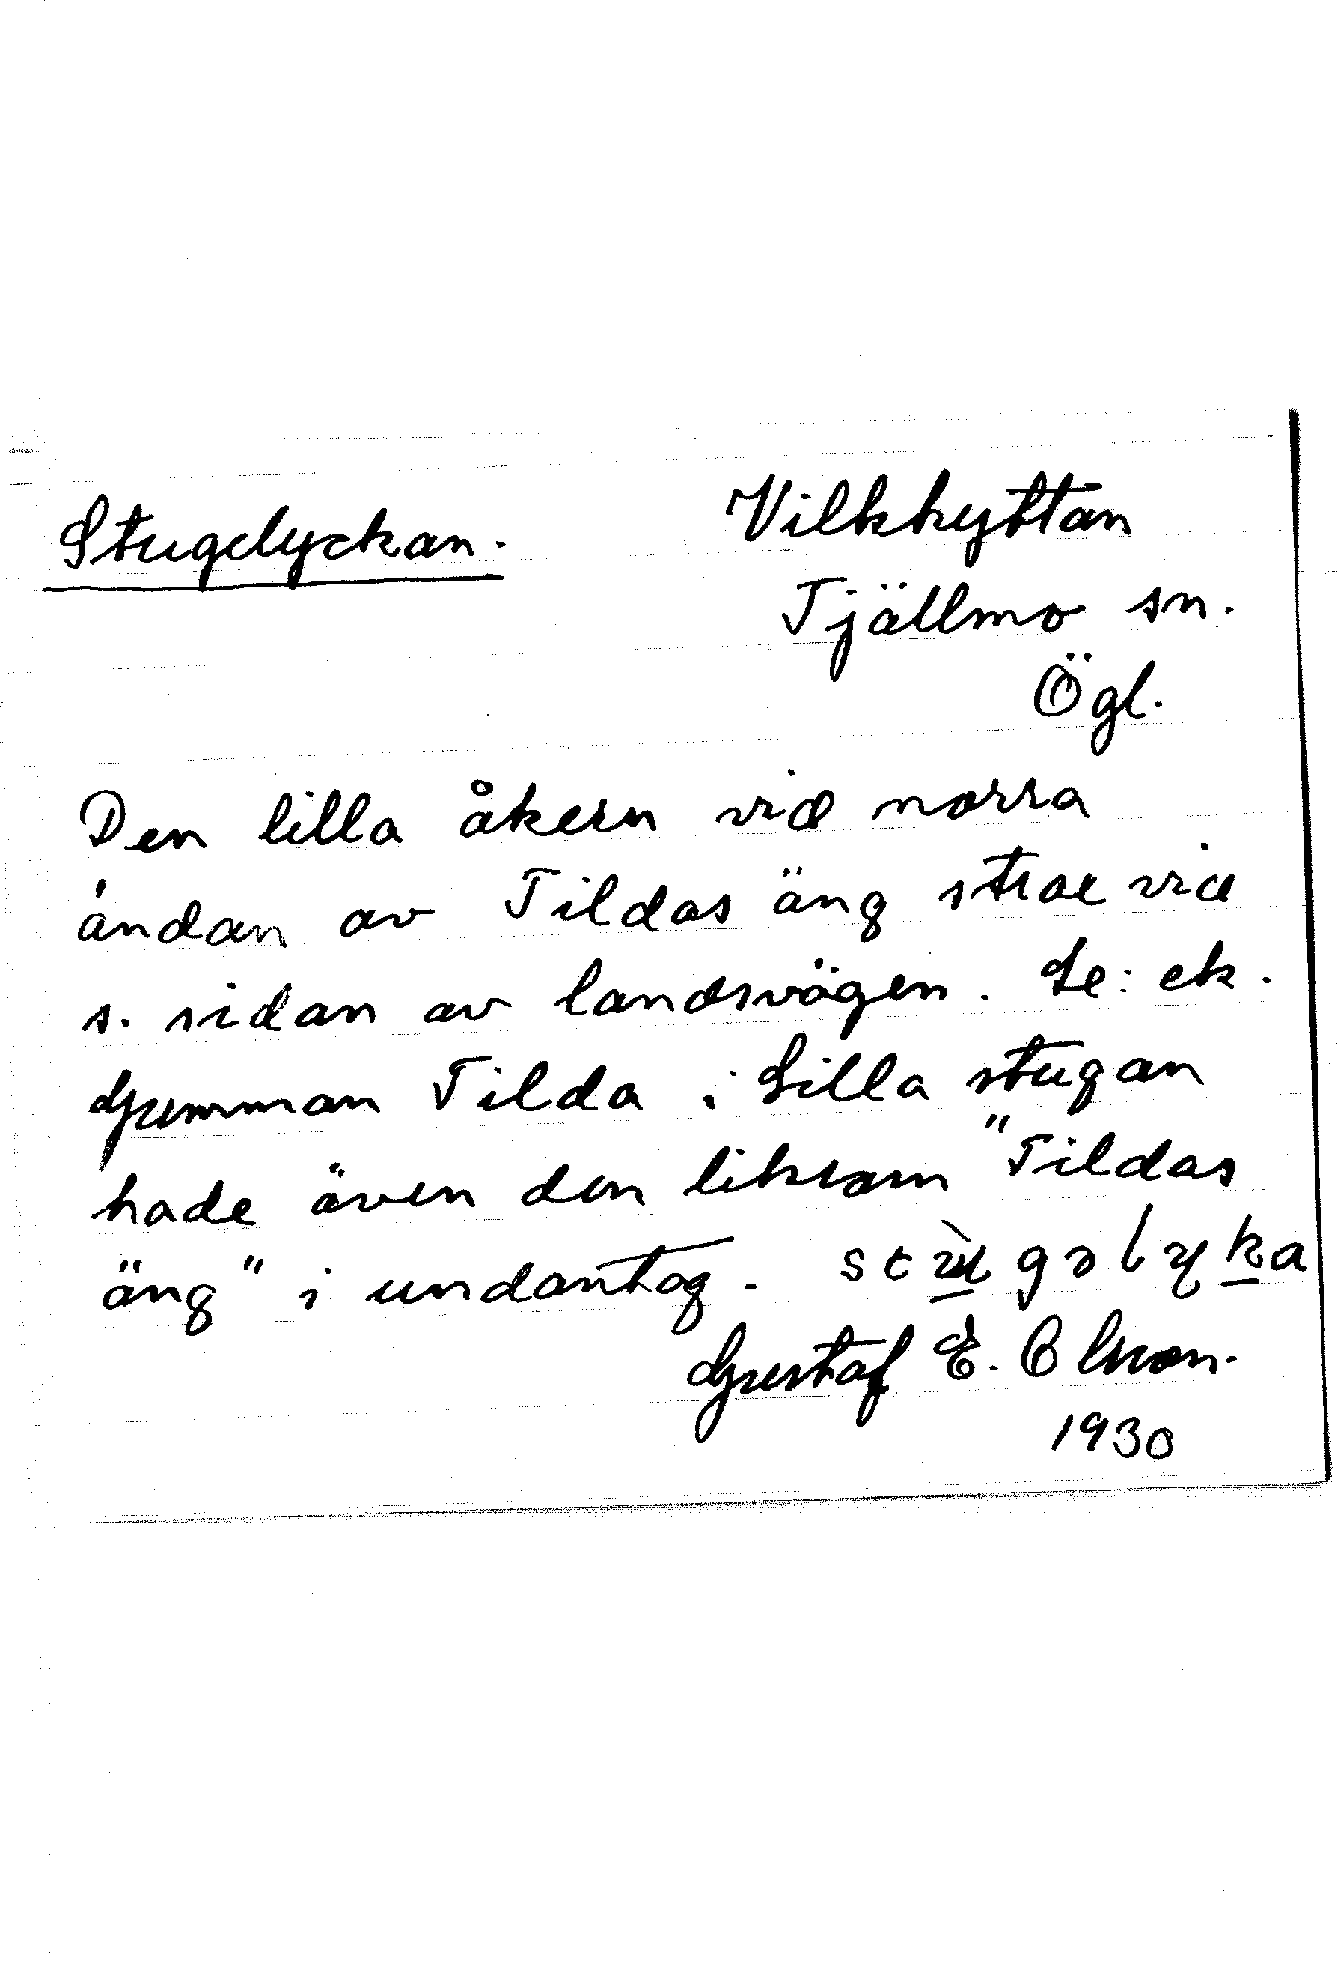 Stugelyckan.
Vilkhyttan
Tjällmo sn.
Ögl.
Den lilla åkern vid norra
ändan av Tildas äng strax vid
s. sidan av landsvägen. Se: ek.
Gumman Tilda i Lilla stugan
hade även den liksom "Tildas
äng" i undantag.
Gustaf E. Olsson.
1930